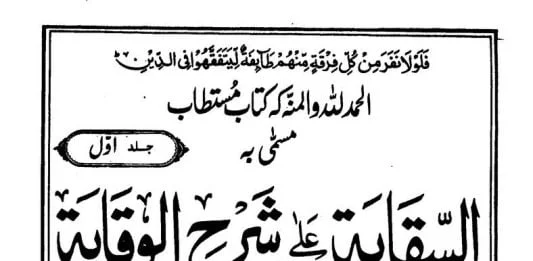 فَلَوْلَا نَفَرَ مِنْ كُلِّ فِرْقَةٍ مِّنْهُمْ طَآئِفَةٌ لِّيَتَفَقَّهُوْا فِي الدِّيْنِ
الحمد للہ والمنہ کہ کتاب مُستطاب
مسمّٰی بہ
جلد اوّل
السِّقَايَة عَلىٰ شَرْحِ الْوِقَايَة